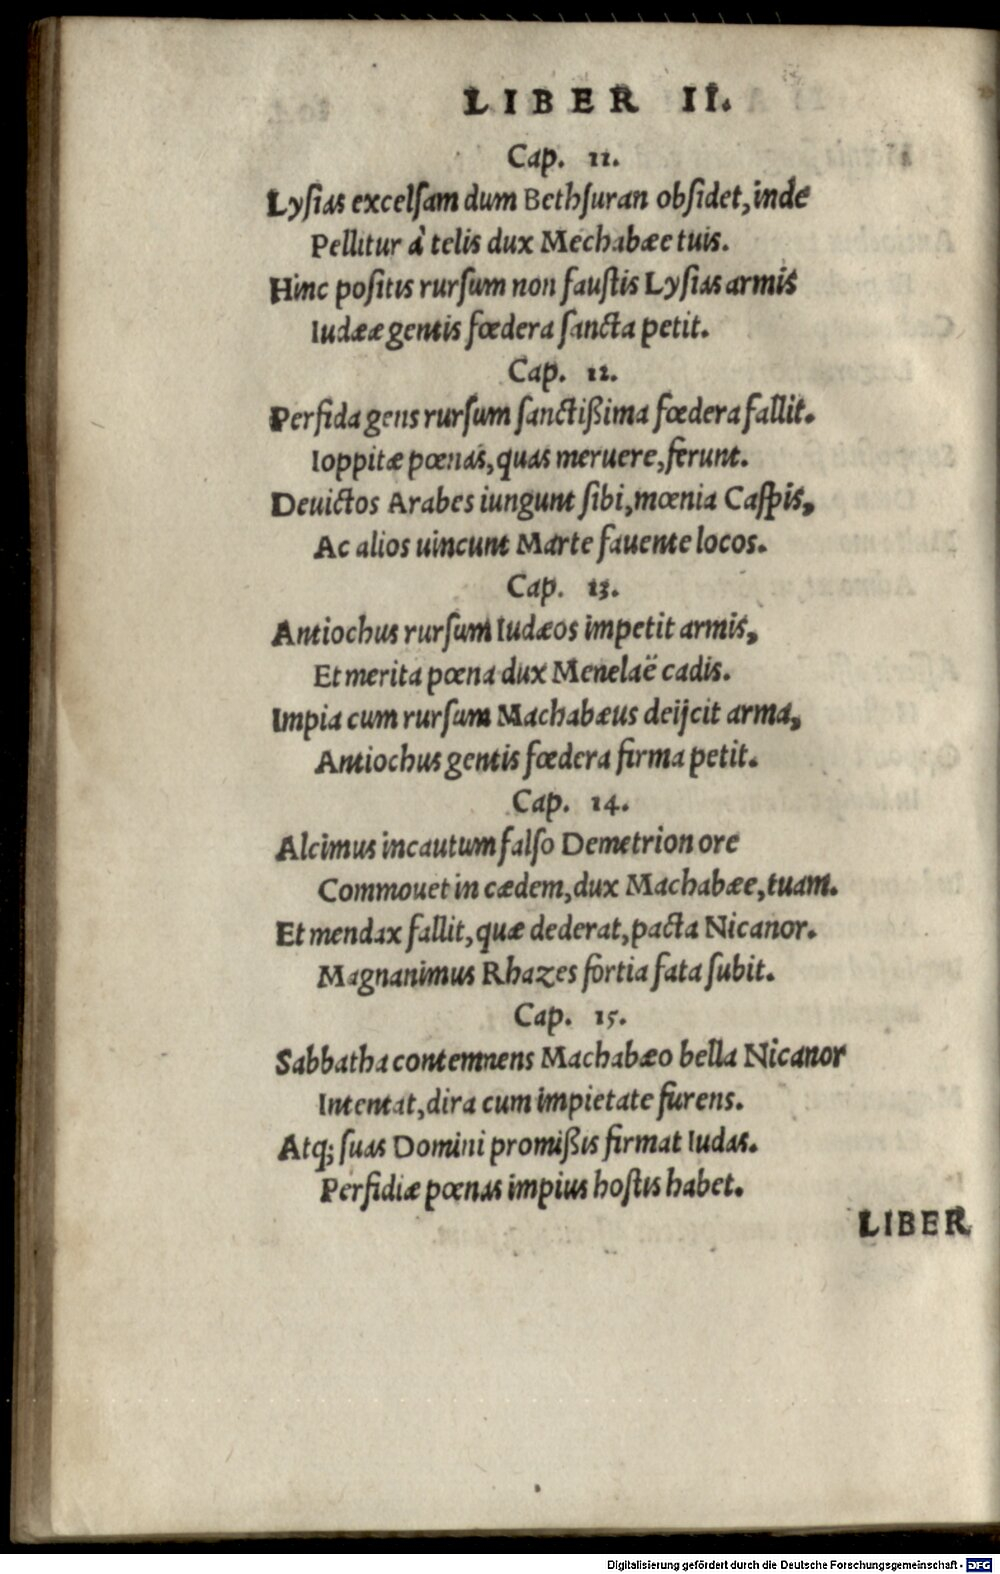 LIBER II.
Cap. 11.
Lyſias excelſam dum Bethſuran obſidet, inde
Pellitur à telis dux Mechabæe tuis.
Hinc poſitis rurſum non fauſtis Lyſias armis
Iudææ gentis fœdera ſancta petit.
Cap. 12.
Perfida gens rurſum ſanctißima fœdera fallit.
Ioppitæ pœnas, quas meruere, ferunt.
Deuictos Arabes iungunt ſibi, mœnia Caſpis,
Ac alios uincunt Marte fauente locos.
Cap. 13.
Antiochus rurſum Iudæos impetit armis,
Et merita pœna dux Menelaë cadis.
Impia cum rurſum Machabæus deijcit arma,
Antiochus gentis fœdera firma petit.
Cap. 14.
Alcimus incautum falſo Demetrion ore
Commouet in cædem, dux Machabæe, tuam.
Et mendax fallit, quæ dederat, pacta Nicanor.
Magnanimus Rhazes fortia fata ſubit.
Cap. 15.
Sabbatha contemnens Machabæo bella Nicanor
Intentat, dira cum impietate furens.
Atq; ſuas Domini promißis firmat Iudas.
Perfidiæ pœnas impius hoſtis habet.
LIBER
Digitalisierung gefördert durch die Deutsche Forschungsgemeinschaft - DFG